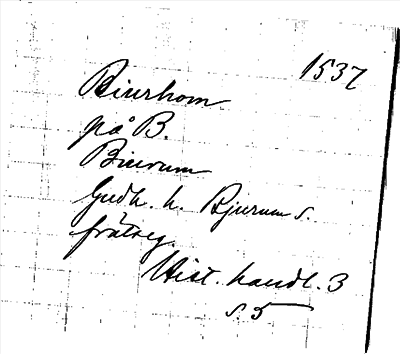 1537
Biurhom
på B.
Biurum
Gudh. h. Bjurum s.
frälseg.
Hist. handl. 3
s. 5